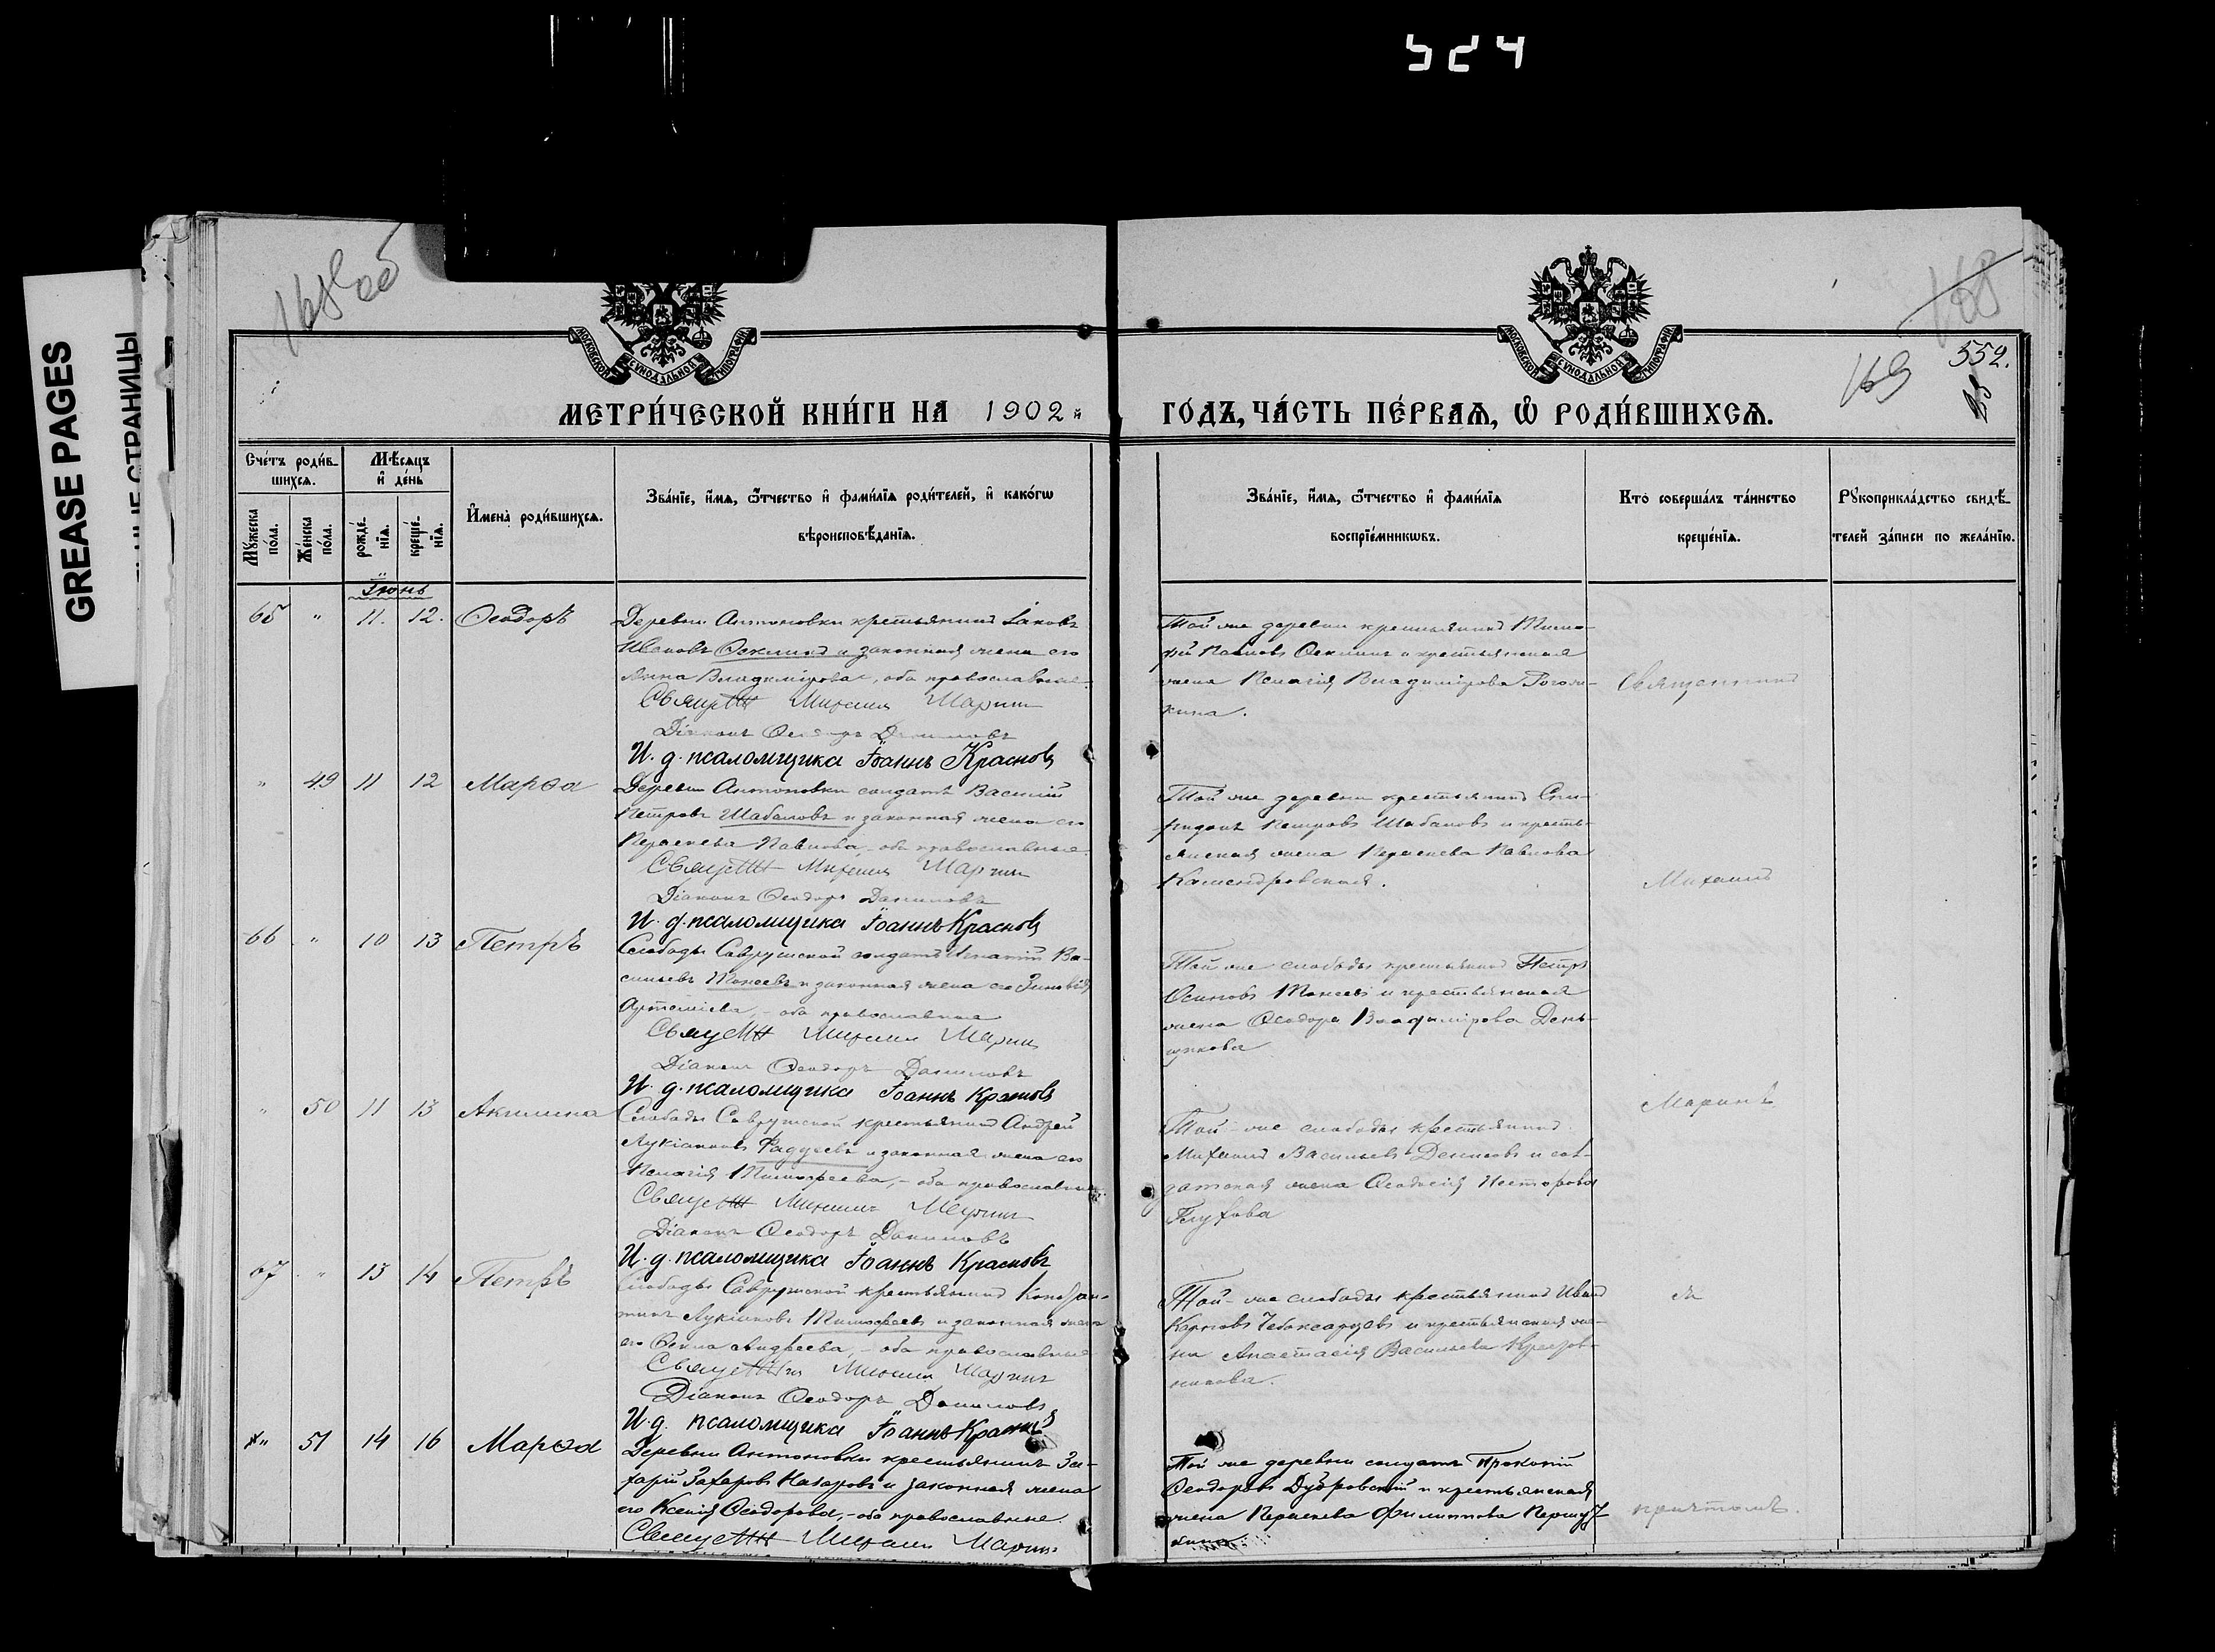 524
GREASE PAGES
168 об
168
169
552.
МОСКОВСКОЙ СѴНОДАЛЬНОЙ ТИПОГРАФІИ
МОСКОВСКОЙ СѴНОДАЛЬНОЙ ТИПОГРАФІИ
МЕТРИ́ЧЕСКОЙ КНИ́ГИ НА 1902 й ГО́ДЪ, ЧА́СТЬ ПЕ́РВАѦ, Ѡ҆ РОДИ́ВШИХСѦ.
Сче́тъ роди́в-
шихсѧ.
Мѣ́сѧцъ
и҆ де́нь
Мꙋ́жеска по́ла.
Же́нска по́ла.
рожде́-нїѧ.
креще́-нїѧ.
И҆мена̀ роди́вшихсѧ.
Зва́нїе, и҆́мѧ, ѻ҆́тчество и҆ фами́лїѧ роди́телей, и҆ како́гѡ
вѣроисповѣ́данїѧ.
Зва́нїе, и҆́мѧ, ѻ҆́тчество и҆ фами́лїѧ
воспрїе́мникѡвъ.
Кто̀ соверша́лъ та́инство
креще́нїѧ.
Рꙋкоприкла́дство свидѣ́-
телей за́писи по жела́нїю.
Іюнь
65 " 11. 12. Ѳеодоръ
Деревни Антоновки крестьянинъ Іаковъ
Ивановъ Ѳекминъ и законная жена его
Анна Владимірова, оба православные.
Михаилъ Маринъ
Діаконъ Ѳеодоръ Даниловъ
И. д. псаломщика Іоаннъ Красновъ
Той же деревни крестьянинъ Тимо-
фей Ѳекминъ и крестьянская
жена Пелагія Владимірова
кина.
Священникъ
" 49 11 12 Марѳа
Деревни Антоновки солдатъ Василій
Петровъ Шабаловъ и законная жена его
Параскева Павлова, - оба православные.
Михаилъ Маринъ
Діаконъ Ѳеодоръ Даниловъ
И. д. псаломщика Іоаннъ Красновъ
Той же деревни крестьянинъ Спи-
ридонъ Петровъ Шабаловъ и кресть-
янская жена Параскева Павлова
Михаилъ
66 " 10 13 Петръ
Слободы Саврушской солдатъ Игнатій Ва-
сильевъ Моисеевъ и законная жена его Зиновія
Артеміева, - оба православные
Михаилъ Маринъ
Діаконъ Ѳеодоръ Даниловъ
И. д. псаломщика Іоаннъ Красновъ
Той же слободы крестьянинъ Петръ
Осиповъ Моисеевъ и крестьянская
жена Ѳеодора Владимірова День-
щикова
" 50 11 13 Акилина
Слободы Саврушской крестьянинъ Андрей
Лукіановъ Фаддеевъ и законная жена его
Пелагія Тимофеева, - оба православные.
Михаилъ Маринъ
Діаконъ Ѳеодоръ Даниловъ
И. д. псаломщика Іоаннъ Красновъ
Маринъ
Той - же слободы крестьянинъ
Михаилъ Васильевъ Денисовъ и сол-
датская жена Ѳеодосія Несторова
Глухова
67 " 13 14 Петръ
Слободы Саврушской крестьянинъ
Лукіановъ Тимофеевъ и законная жена
его Андреева, - оба православные
Михаилъ Маринъ
Діаконъ Ѳеодоръ Даниловъ
И. д. псаломщика Іоаннъ Красновъ
Той - же слободы крестьянинъ Иванъ
Карповъ Чебоксарцевъ и крестьянская же-
на Анастасія Васильева
никова.
" 51 14 16 Марѳа
Деревни Антоновки крестьянинъ За-
харій Захаровъ Назаровъ и законная жена
его Ксенія Ѳеодорова, - оба православные.
Михаилъ Маринъ
Той же деревни солдатъ Прокопій
Ѳеодоровъ Дубровскій и крестьянская
жена Параскева Филиппова
причтомъ.